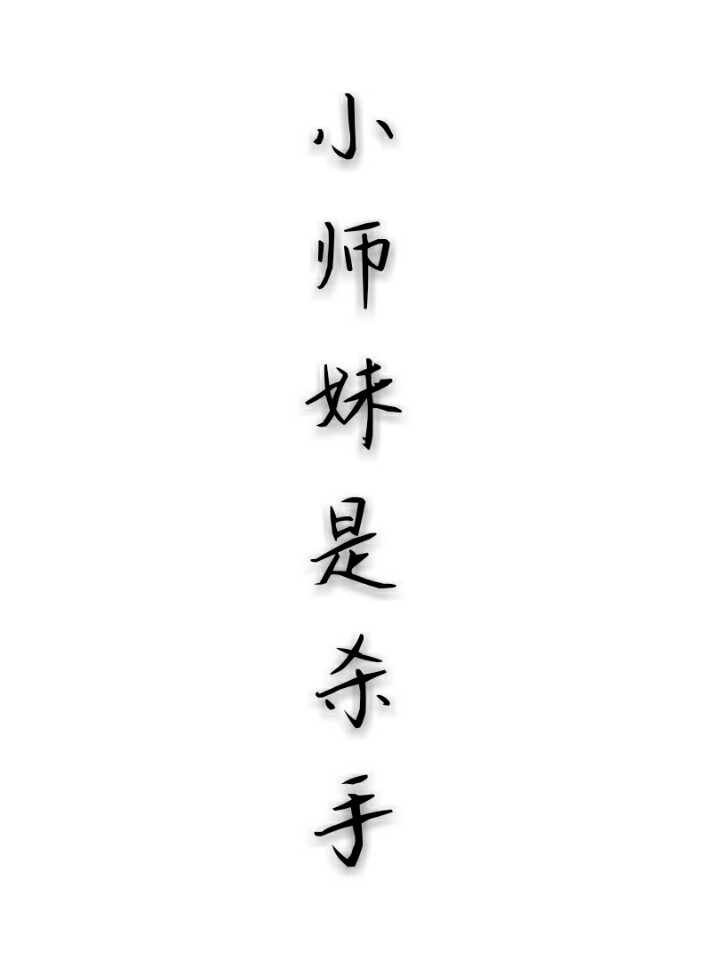 小师妹是杀手